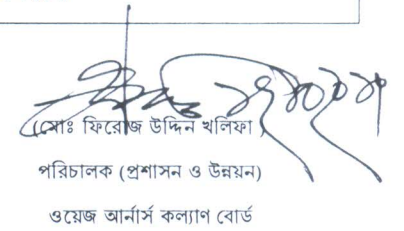 (মোঃ ফিরোজ উদ্দিন খলিফা)
পরিচালক (প্রশাসন ও উন্নয়ন)
ওয়েজ আর্নার্স কল্যাণ বোর্ড